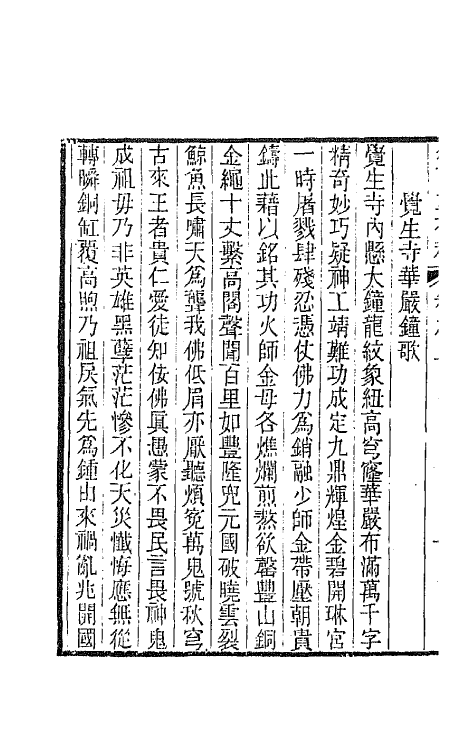 覺生寺華嚴鐘歌
覺生寺內懸大鐘龍紋象紐高穹窿華嚴布滿萬千字
精奇妙巧疑神工靖難功成定九鼎輝煌金碧開琳宮
一時屠戮肆殘忍憑仗佛力爲銷融少師金帶壓朝貴
鑄此藉以銘其功火師金母各燋爛煎熬欲罄豐山銅
金繩十丈繫高閣聲聞百里如豐隆兜元國破曉雲裂
鯨魚長嘯天爲聾我佛低眉亦厭聽煩冤萬鬼號秋穹
古來王者貴仁愛徒知佞佛眞愚蒙不畏民言畏神鬼
成祖毋乃非英雄黑孽茫茫慘不化天災懺悔應無從
轉瞬銅缸覆高煦乃祖戾氣先爲鍾由來禍亂兆開國